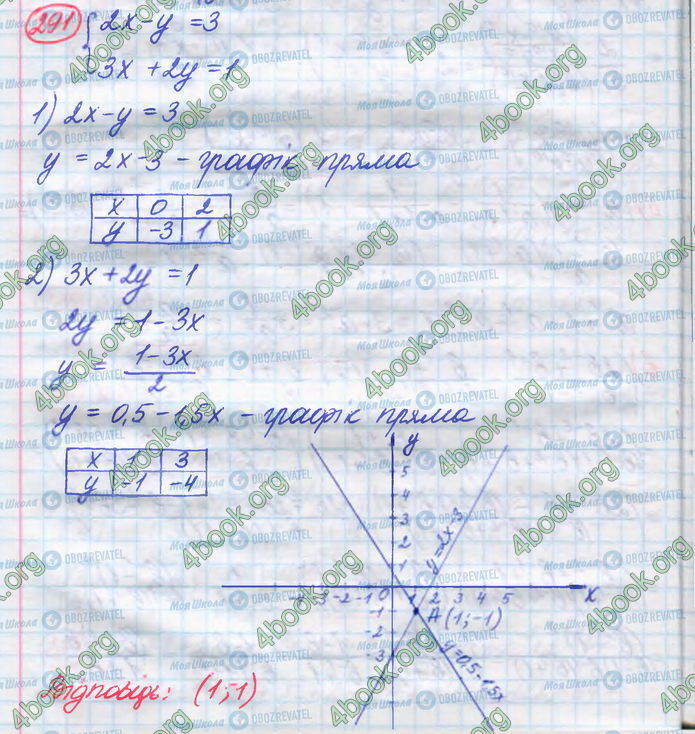 291
2x - y = 3
3x + 2y = 1
1) 2x - y = 3
y = 2x - 3 - графік пряма
x 0 2
y -3 1
2) 3x + 2y = 1
2y = 1 - 3x
y = 1 - 3x / 2
y = 0,5 - 1,5x - графік пряма
x 1 3
y -1 -4
y
5
4
3
2
1
y = 2x-3
-3 -2 -1 0 1 2 3 4 5 x
-1 A (1; -1)
-2
-3
y = 0,5 - 1,5x
Відповідь: (1; -1)
4book.org
Моя Школа OBOZREVATEL